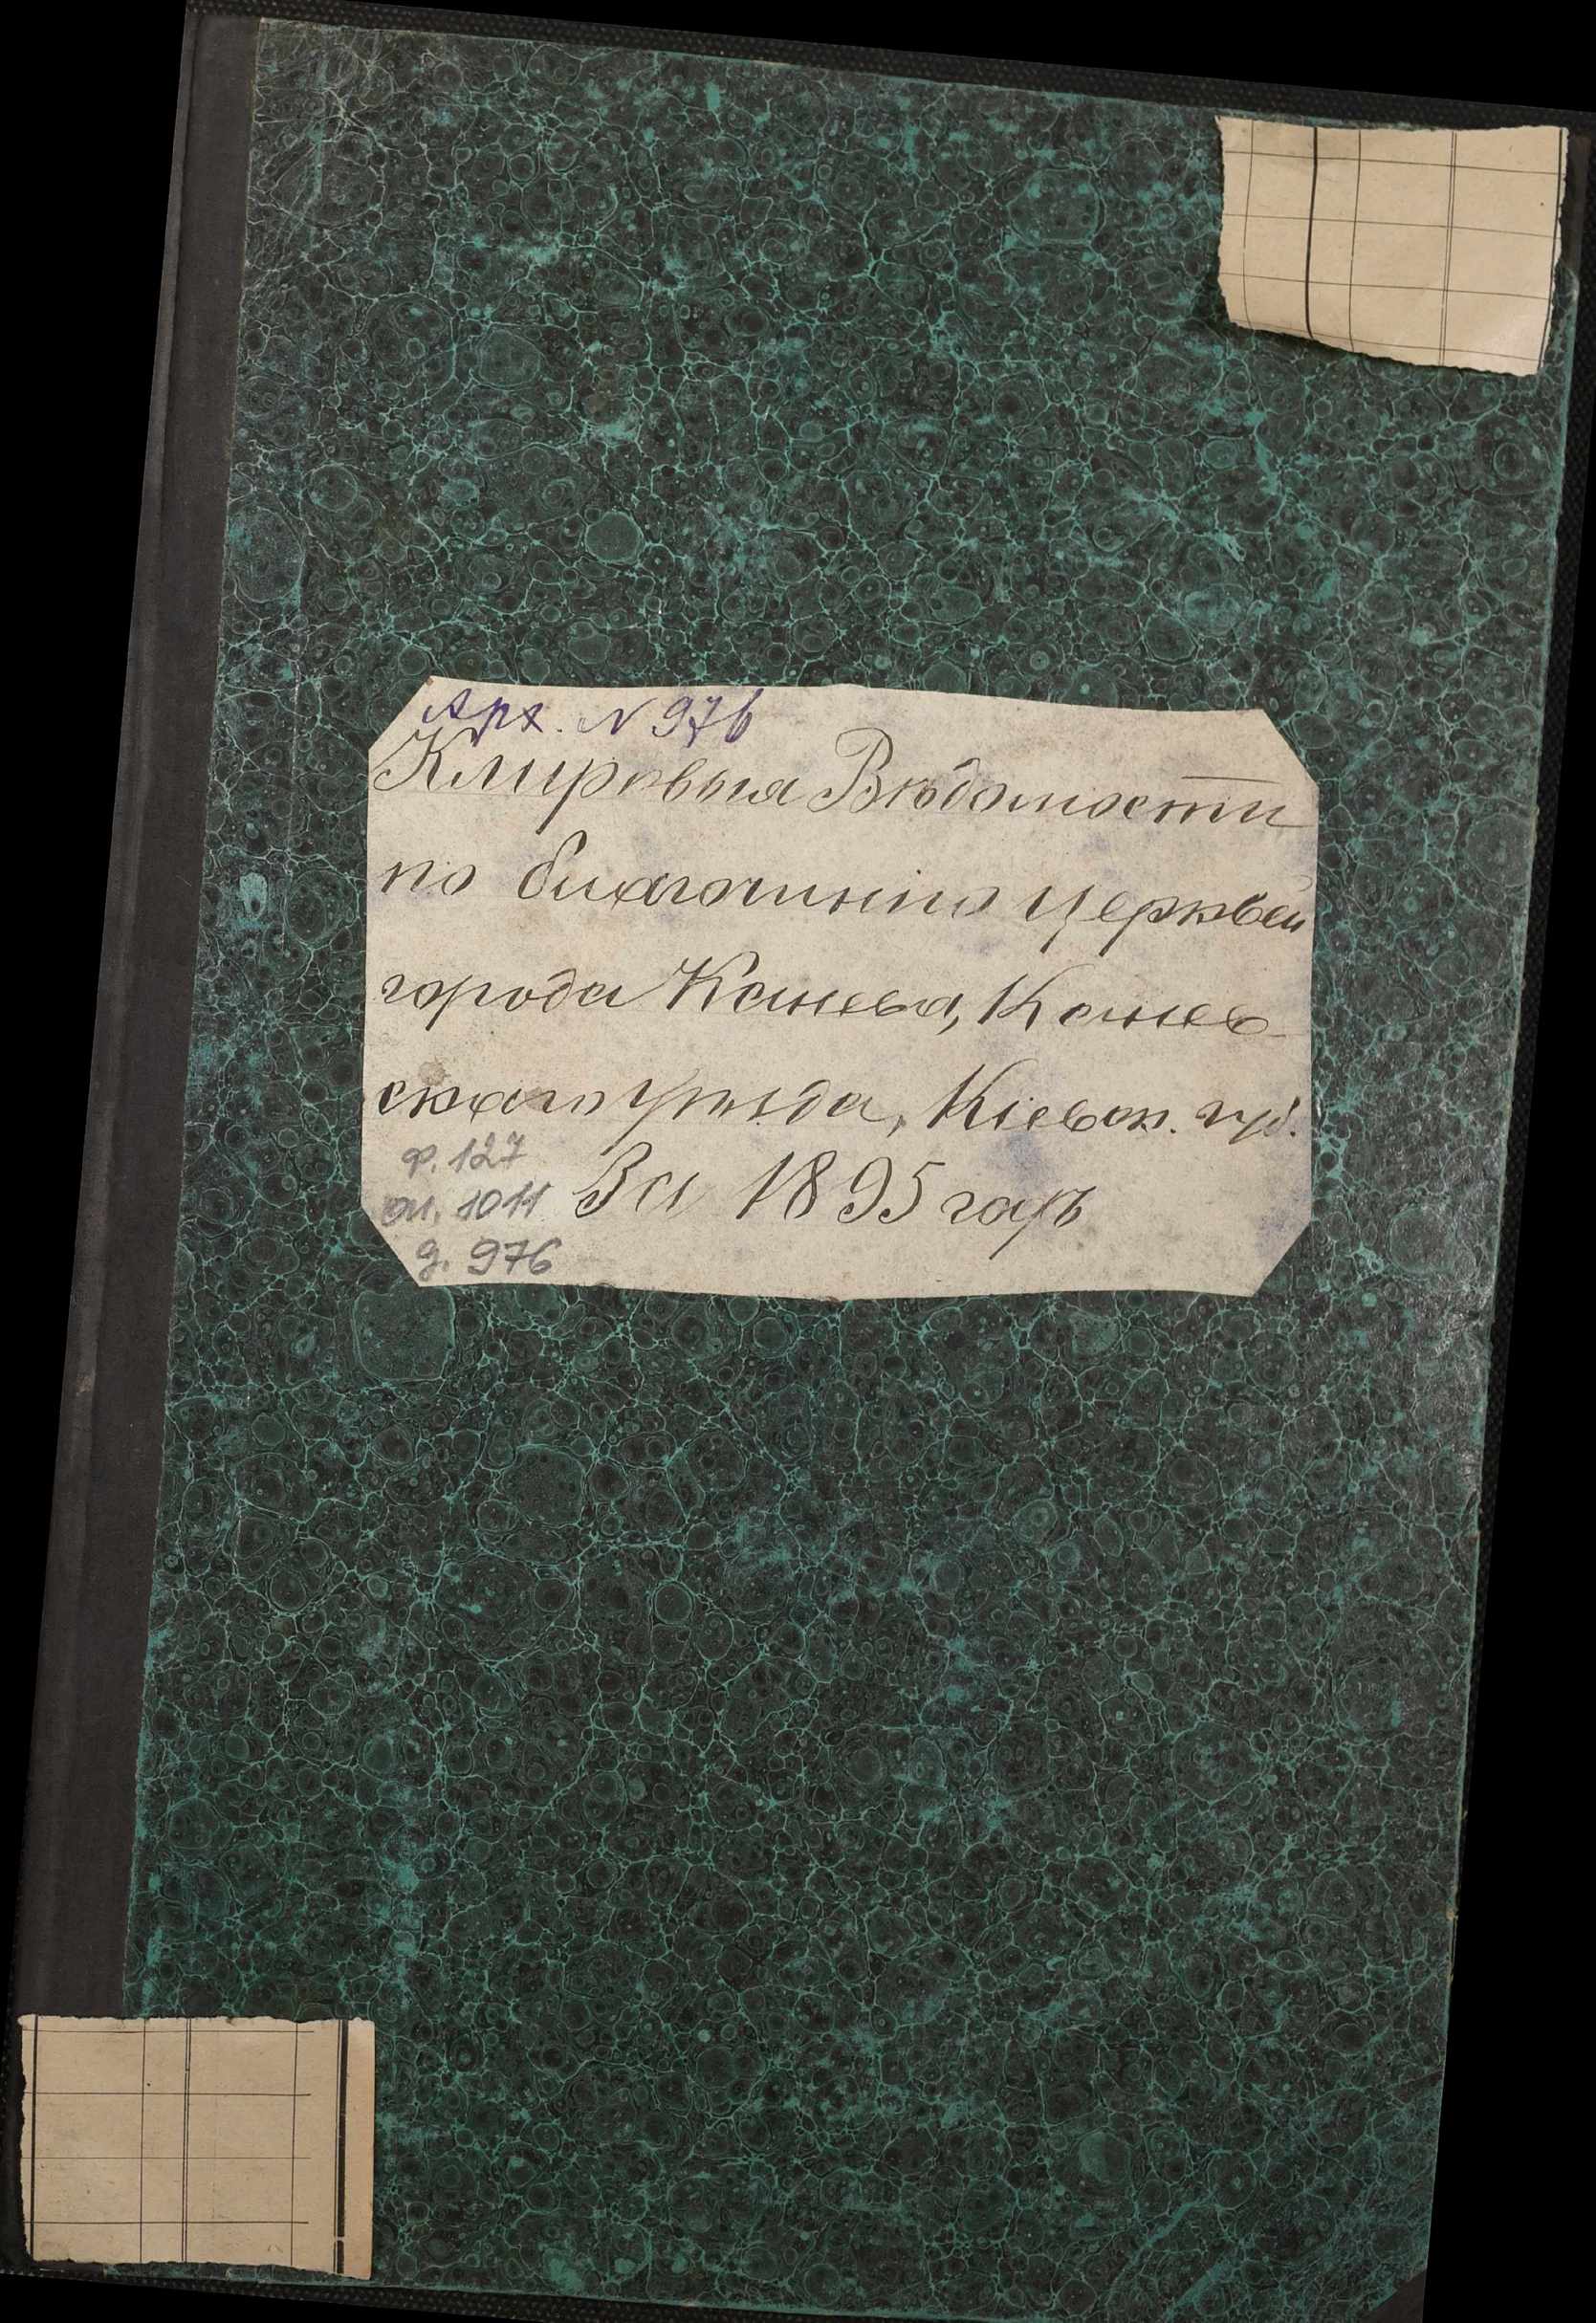 Арх. N 976
Клировыя Вѣдомости
по благочинію церквей
города Канева, Канев-
скаго уѣзда, Кіевск. губ.
За 1895 годъ
ф. 127
оп. 1011
д. 976